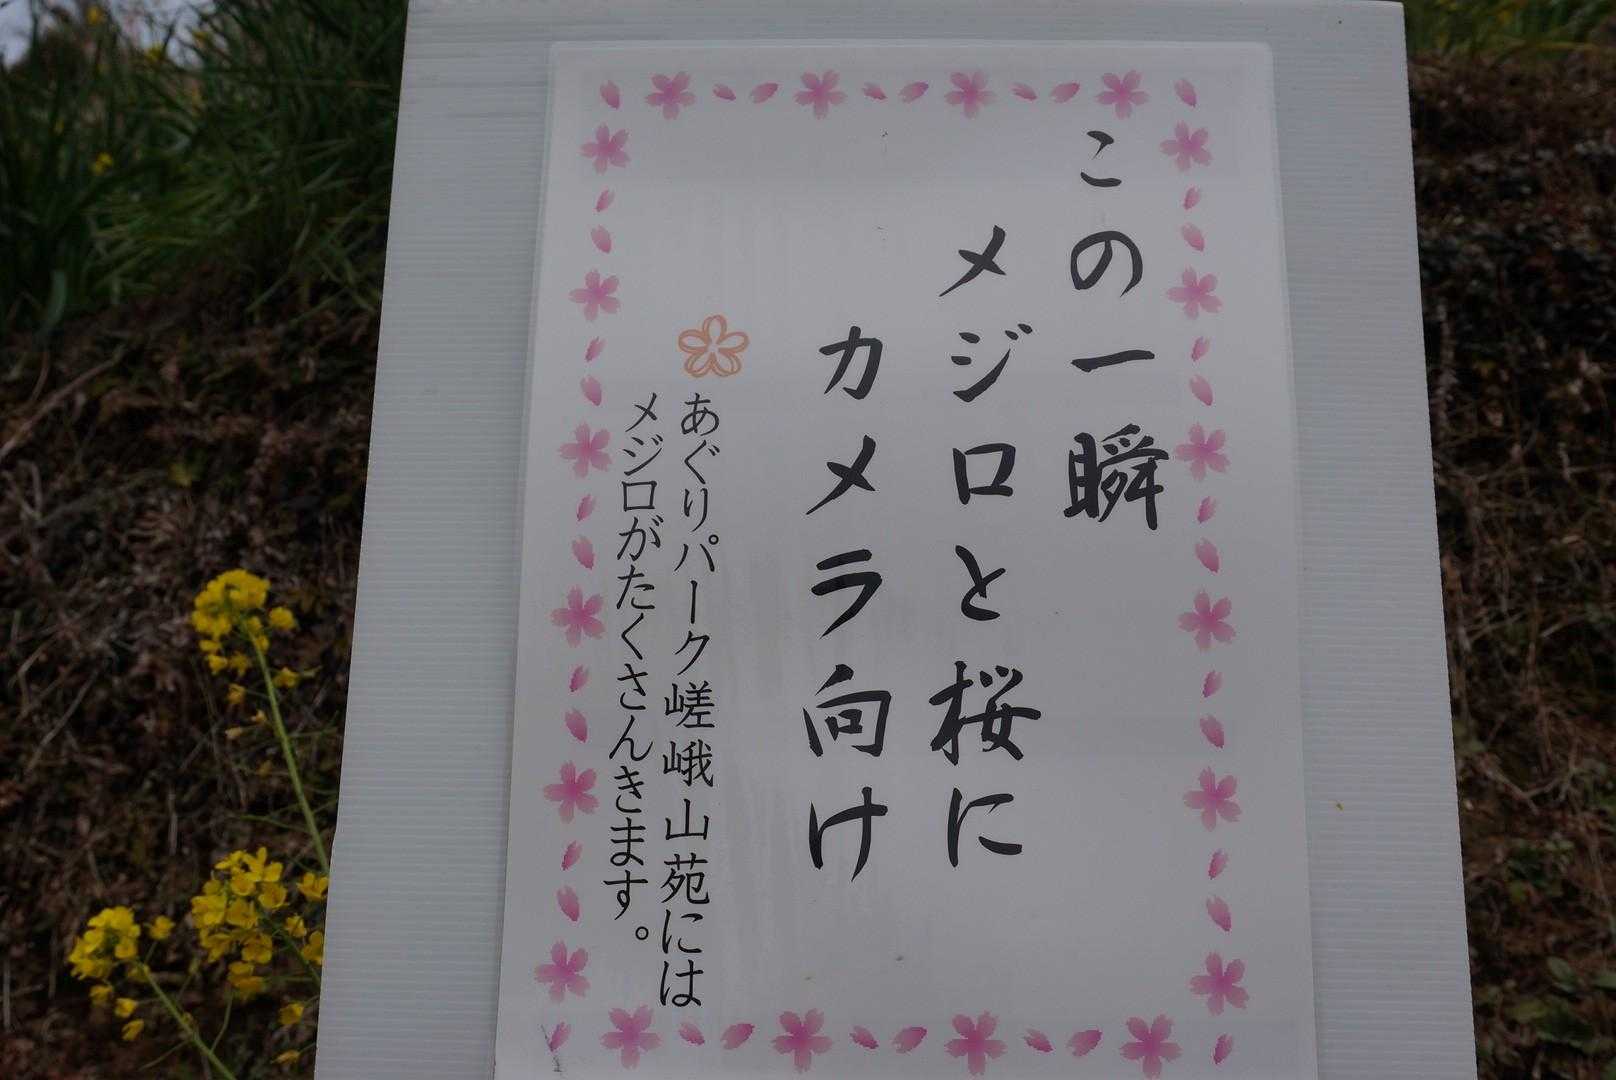 この一瞬
メジロと桜に
カメラ向け
あぐりパーク嵯峨山苑には
メジロがたくさんきます。